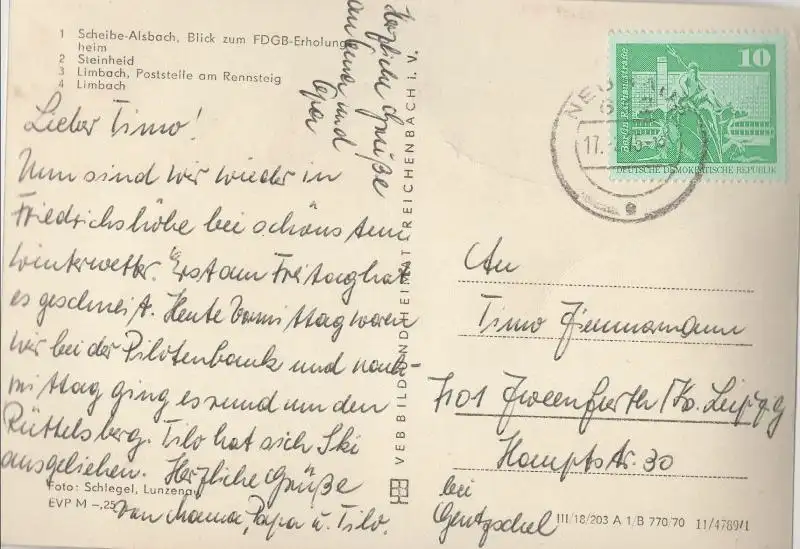 1 Scheibe-Alsbach, Blick zum FDGB-Erholungs-
heim
2 Steinheid
3 Limbach, Poststelle am Rennsteig
4 Limbach
Herzliche Grüße
an Oma und
Opa
Lieber Timo!
Nun sind wir wieder in
Friedrichshöhe bei schönstem
Winterwetter. Erst am Freitag hat
es geschneit. Heute Vormittag waren
wir bei der Pilotenbank und nach-
mittag ging es rund um den
Rüttelsberg. Tilo hat sich Ski
ausgeliehen. Herzliche Grüße
von Mama, Papa u. Tilo.
Foto: Schlegel, Lunzenau
EVP M -,25
VEB BILD UND HEIMAT REICHENBACH I. V.
10
Berlin Rathausstraße
DEUTSCHE DEMOKRATISCHE REPUBLIK
NEUHAUS
17.
An
Timo
7101 Zweenfurth / Kr. Leipzig
Hauptstr. 30
bei
Gentzschel
III/18/203 A 1/B 770/70 11/4789/1